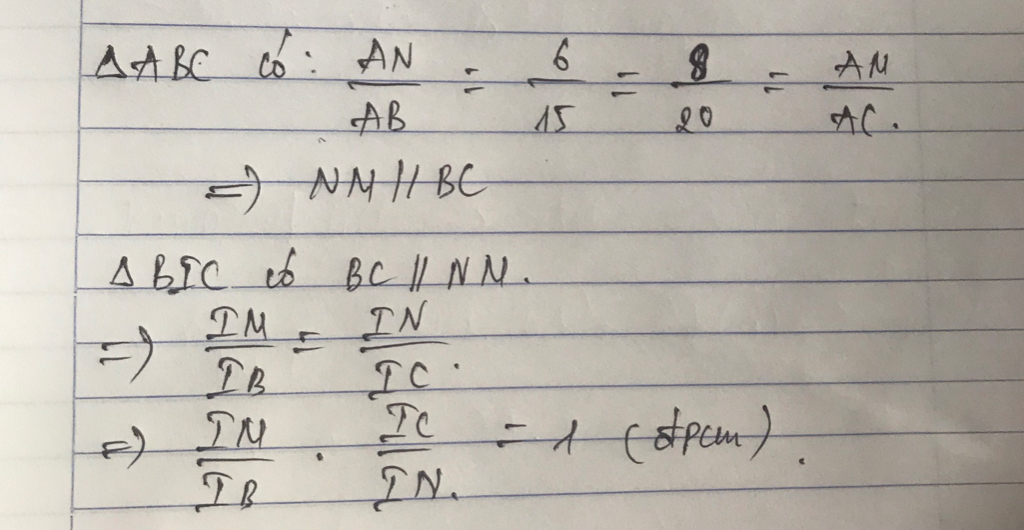 ΔABC có: AN/AB = 6/15 = 8/20 = AM/AC.
=> NM // BC
ΔBIC có BC // NM.
=> IM/IB = IN/IC.
=> IM/IB . IC/IN = 1 (đpcm).